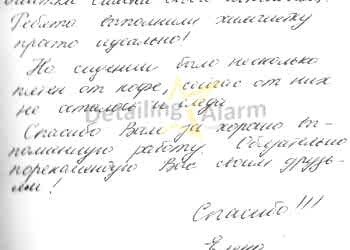 Ребята выполнили химчистку
просто идеально!
На сидении было несколько
пятен от кофе, сейчас от них
не осталось и следа
Detailing Alarm
Спасибо Вам за хорошо вы-
полненную работу. Обязательно
порекомендую Вас своим друзь-
ям!
Спасибо!!!
Елена